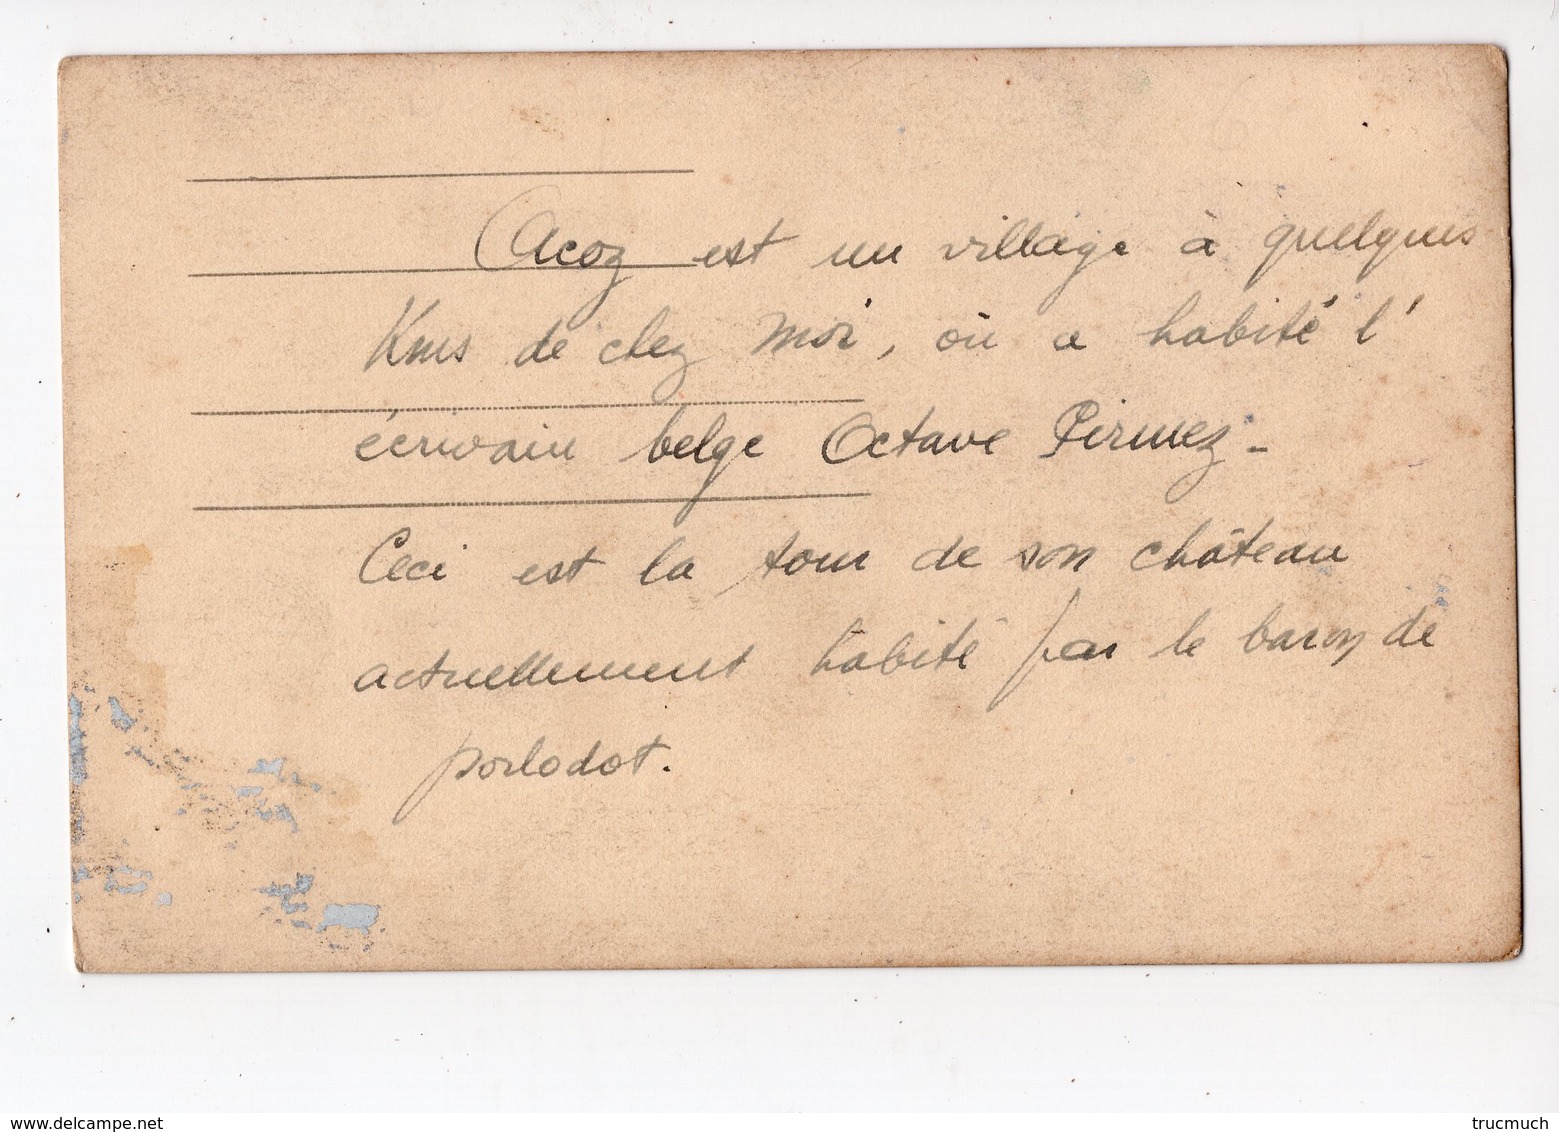 Acoz est un village à quelques
Kms de chez moi, où a habité l'
écrivain belge Octave Pirmez -
Ceci est la tour de son château
actuellement habité par le baron de
porlodot.
delcampe.net
trucmuch